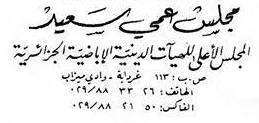 مجلس عمي سعيد
المجلس الأعلى للهيآت الدينية الإباضية الجزائرية
ص.ب: ١١٣ غرداية - وادي ميزاب
الهاتف: ٢٦ ٣٣ ٠٢٩/٨٨
الفاكس: ٥٠ ٢١ ٠٢٩/٨٨